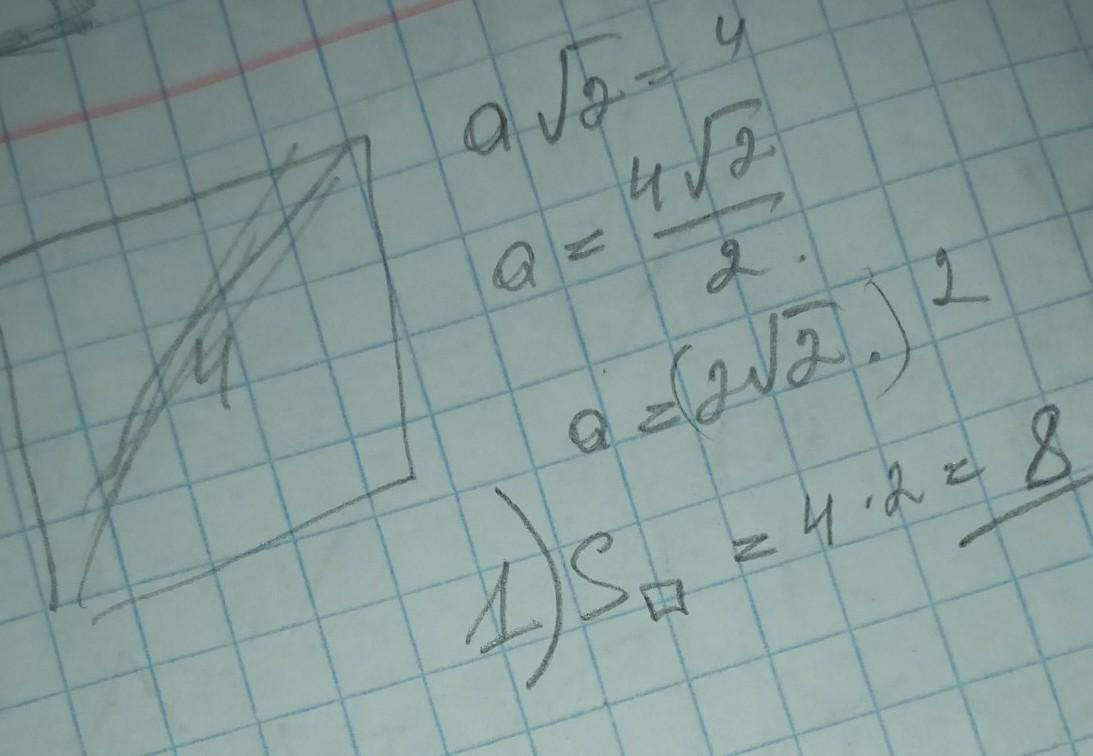 a√2 = 4
a = 4√2/2.
4
a = (2√2.)²
1) S□ = 4·2 = 8